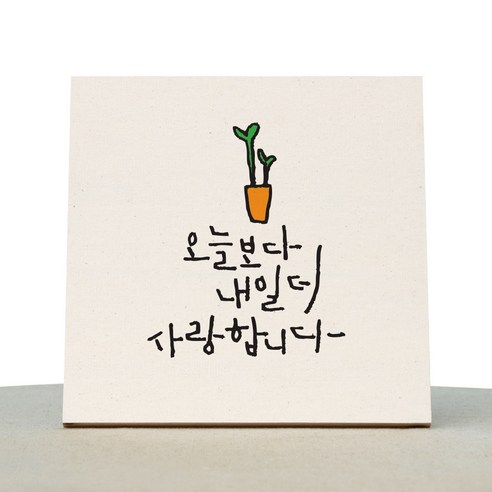 오늘보다
내일 더
사랑합니다